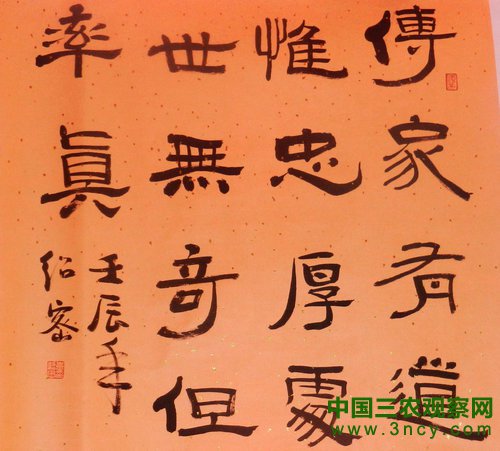 傳家有道
惟忠厚處
世無奇但
率真
壬辰年
绍密
中国三农观察网
www.3ncy.com